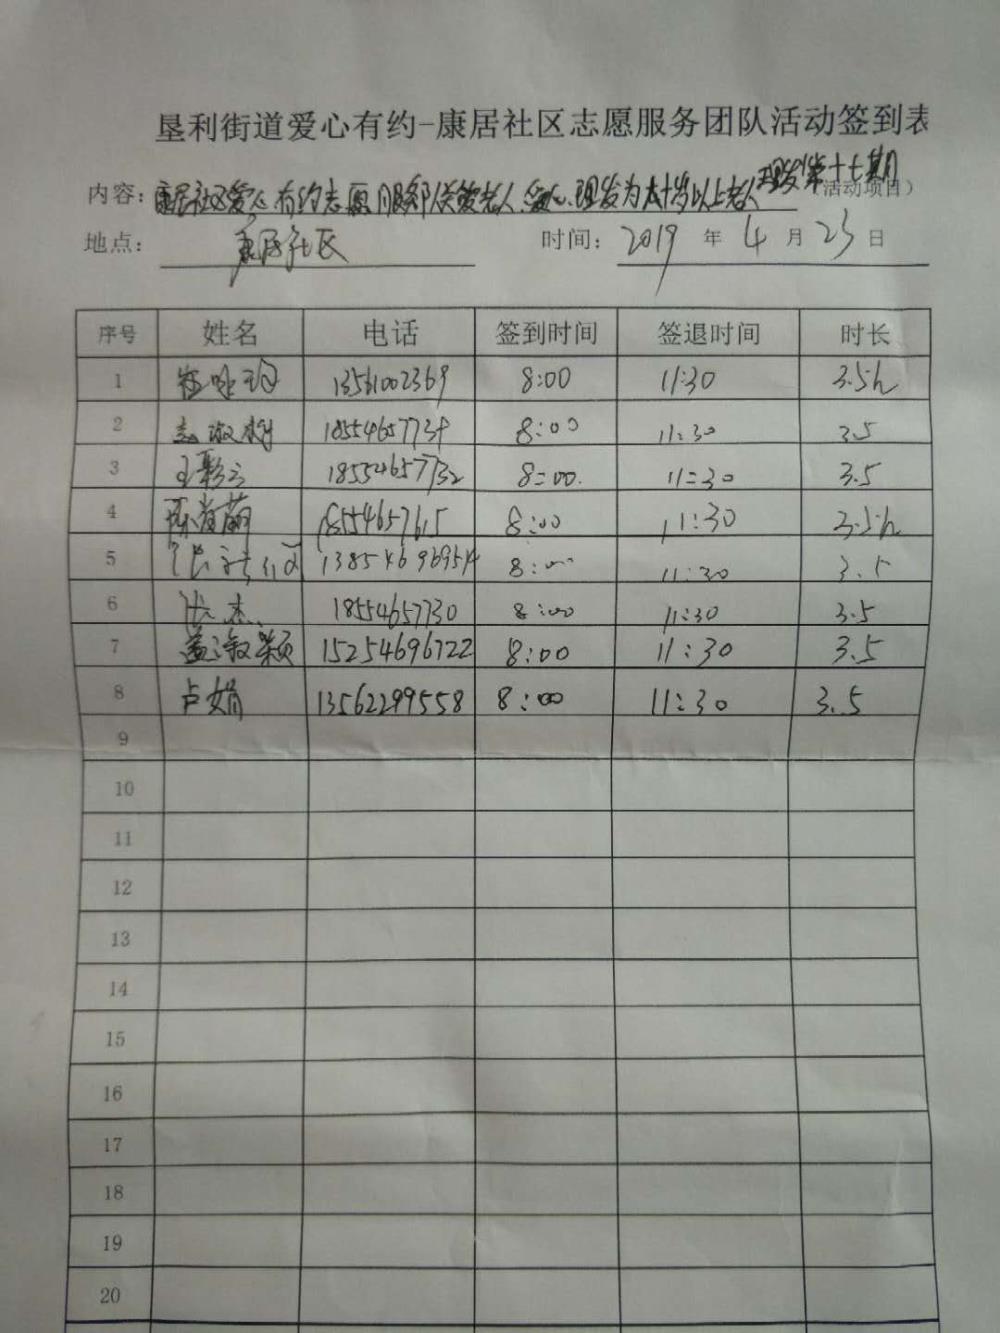 垦利街道爱心有约-康居社区志愿服务团队活动签到表
内容：康居社区爱心有约志愿服务队关爱老人、爱心理发为六十岁以上老人理发第十七期（活动项目）
地点：康居社区 时间：2019 年 4 月 23 日
序号 姓名 电话 签到时间 签退时间 时长
1 13561002369 8:00 11:30 3.5h
2 18554657734 8:00 11:30 3.5
3 王彩云 18554657732 8:00 11:30 3.5
4 陈肖萌 18554657615 8:00 11:30 3.5h
5 8:00 11:30 3.5
6 张杰 18554657730 8:00 11:30 3.5
7 盖淑颖 15254696722 8:00 11:30 3.5
8 卢娟 13562299558 8:00 11:30 3.5
9
10
11
12
13
14
15
16
17
18
19
20